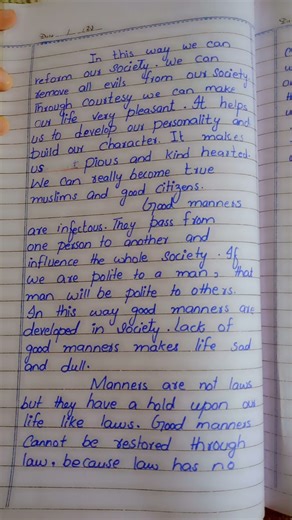 In this way we can
reform our society. We can
remove all evils from our society.
Through courtesy we can make
our life very pleasant. It helps
us to develop our personality and
build our character. It makes
us pious and kind hearted.
We can really become true
muslims and good citizens.
Good manners
are infectous. They pass from
one person to another and
influence the whole society. If
we are polite to a man, that
man will be polite to others.
In this way good manners are
developed in society. Lack of
good manners makes life sad
and dull.
Manners are not laws
but they have a hold upon our
life like laws. Good manners
cannot be restored through
law, because law has no